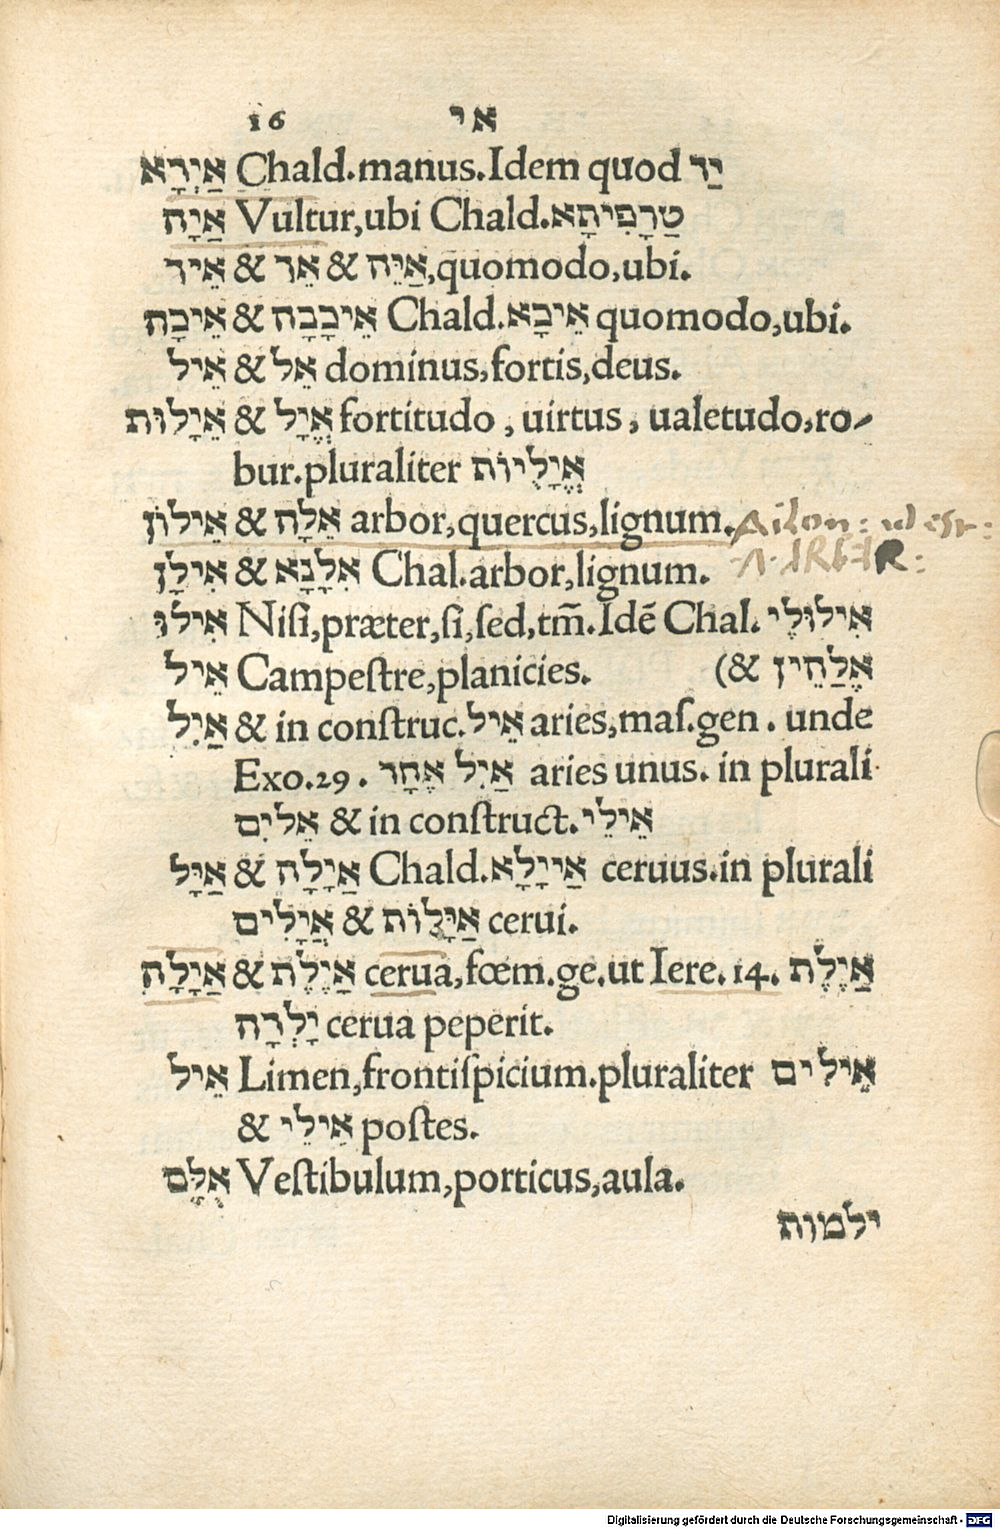 16 אי
אַיְדָא Chald.manus.Idem quod יַד
אַיָּה Vultur,ubi Chald.טָרָפִיתָא
אֵיךְ & אֵךְ & אַיֵּה,quomodo,ubi.
אֵיכָה & אֵיכָכָה Chald.אֵיכָא quomodo,ubi.
אֵיל & אֵל dominus,fortis,deus.
אֵיָלוּת & אֱיָל fortitudo , uirtus , ualetudo,ro⸗
bur.pluraliter אֱיָלֻיּוֹת
אֵילוֹן & אֵלָה arbor,quercus,lignum. Ailon: id est:
אִילָן & אִלָנָא Chal.arbor,lignum.
אִילוּ Niſi,præter,ſi,ſed,tm̄.Idē Chal.אִילוּלֵי
אֵיל Campeſtre,planicies. (& אֱלָהֵין
אַיִל & in conſtruc.אֵיל aries,maſ.gen . unde
Exo.29 . אַיִל אֶחָד aries unus. in plurali
אֵלִים & in conſtruct.אֵילֵי
אַיָּל & אַיָּלָה Chald.אַיילָא ceruus.in plurali
אַיָּלִים & אַיָּלוֹת cerui.
אַיָּלָה & אַיֶּלֶת cerua,fœm.ge.ut Iere.14. אַיֶּלֶת
יָלְדָה cerua peperit.
אֵיל Limen,frontiſpicium.pluraliter אֵילִים
& אֵילֵי poſtes.
אֻלָם Veſtibulum,porticus,aula.
ילמות
Digitalisierung gefördert durch die Deutsche Forschungsgemeinschaft - DFG